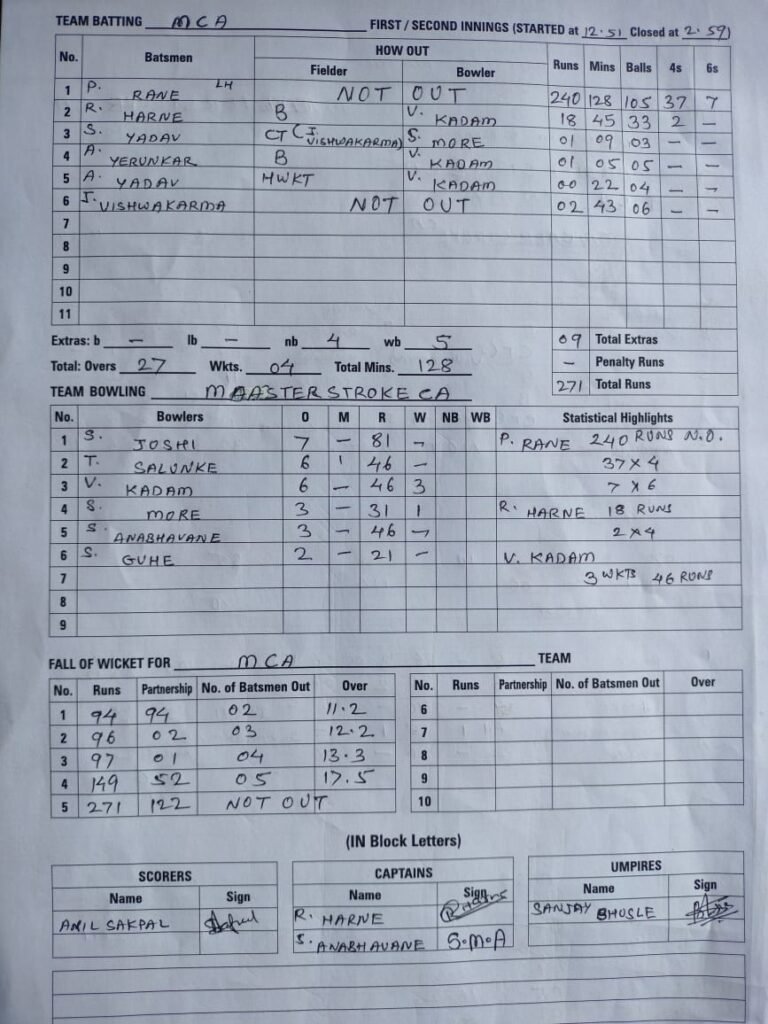 TEAM BATTING MCA FIRST / SECOND INNINGS (STARTED at 12.51 Closed at 2.59)
No. Batsmen HOW OUT Runs Mins Balls 4s 6s
Fielder Bowler
1 P. RANE LH NOT OUT 240 128 105 37 7
2 R. HARNE B V. KADAM 18 45 33 2 –
3 S. YADAV CT (J. VISHWAKARMA) S. MORE 01 09 03 – –
4 A. YERUNKAR B V. KADAM 01 05 05 – –
5 A. YADAV HWKT V. KADAM 00 22 04 – –
6 J. VISHWAKARMA NOT OUT 02 43 06 – –
7
8
9
10
11
Extras: b – lb – nb 4 wb 5 09 Total Extras
– Penalty Runs
Total: Overs 27 Wkts. 04 Total Mins. 128 271 Total Runs
TEAM BOWLING MAASTER STROKE CA
No. Bowlers O M R W NB WB Statistical Highlights
1 S. JOSHI 7 – 81 – P. RANE 240 RUNS N.O.
2 T. SALUNKE 6 1 46 – 37 x 4
3 V. KADAM 6 – 46 3 7 x 6
4 S. MORE 3 – 31 1 R. HARNE 18 RUNS
5 S. ANABHAVANE 3 – 46 – 2 x 4
6 S. GUHE 2 – 21 – V. KADAM
7 3 WKTS 46 RUNS
8
9
FALL OF WICKET FOR MCA TEAM
No. Runs Partnership No. of Batsmen Out Over No. Runs Partnership No. of Batsmen Out Over
1 94 94 02 11.2 6
2 96 02 03 12.2 7
3 97 01 04 13.3 8
4 149 52 05 17.5 9
5 271 122 NOT OUT 10
(IN Block Letters)
SCORERS CAPTAINS UMPIRES
Name Sign Name Sign Name Sign
ANIL SAKPAL R. HARNE SANJAY BHOSLE
S. ANABHAVANE S.M.A